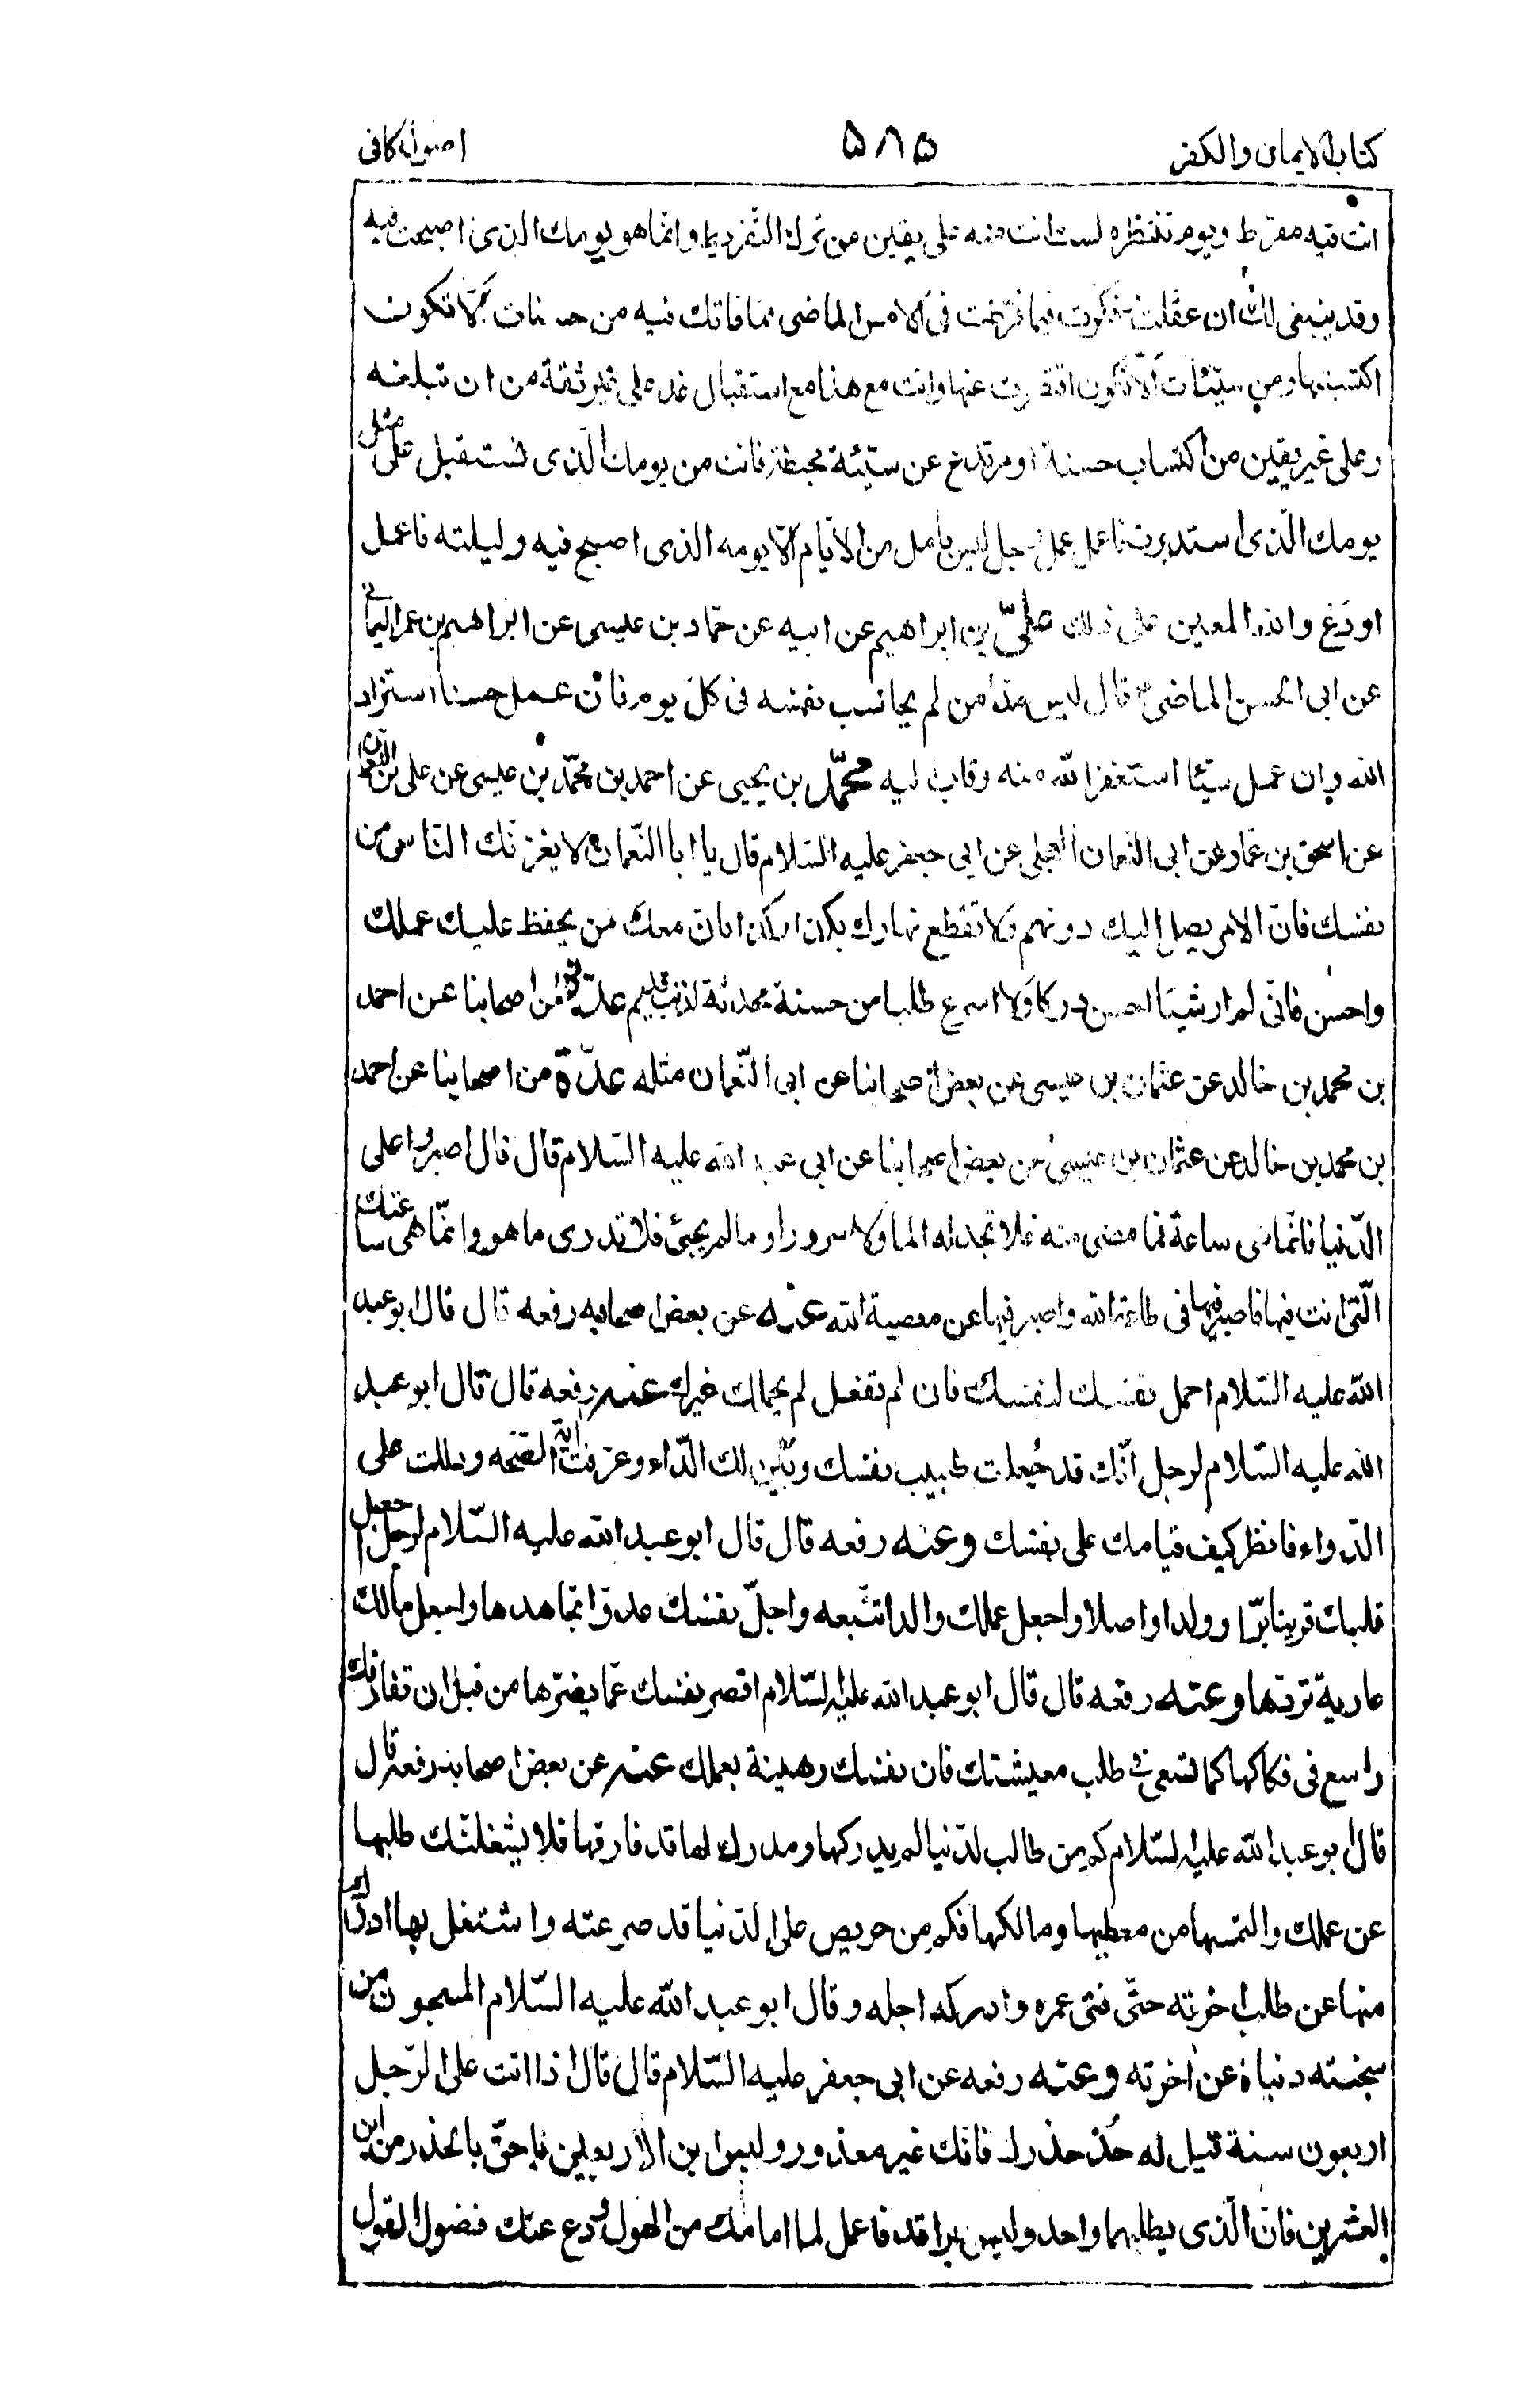 كتاب الايمان والكفر
۵۸۵
اصول كافى
انت فيه مفرط ويوم تنتظره لست انت منه على يقين من ترك التفريط وانما هو يومك الذى اصبحت فيه
وقد ينبغى لك ان عقلت وفكرت فيما فرطت فى الامس الماضى مما فاتك فيه من حسنات الا تكون
اكتسبتها ومن سيئات الا تكون اقصرت عنها وانت مع هذا مع استقبال غد على غير ثقة من ان تبلغه
وعلى غير يقين من اكتساب حسنة او مرتدع عن سيئة محبطة فانت من يومك الذى تستقبل على مثل
يومك الذى استدبرت فاعمل عمل رجل ليس يأمل من الأيام الا يومه الذى اصبح فيه وليلته فاعمل
او دع والله المعين على ذلك علىّ بن ابراهيم عن ابيه عن حماد بن عيسى عن ابراهيم بن عمر اليمانى
عن ابى الحسن الماضى قال ليس منا من لم يحاسب نفسه فى كل يوم فان عمل حسنا استزاد
الله وان عمل سيئا استغفر الله منه وتاب اليه محمّد بن يحيى عن احمد بن محمّد بن عيسى عن على بن النعمان
عن اسحق بن عمار عن ابى النعمان العجلى عن ابى جعفر عليه السّلام قال يا ابا النّعمان لا يغرنّك النّاس من
نفسك فان الامر يصل اليك دونهم ولا تقطع نهارك بكذا وكذا فان معك من يحفظ عليك عملك
واحسن فانّى لم ار شيئا احسن دركا ولا اسرع طلبا من حسنة محدثة لذنب قديم عدّة من اصحابنا عن احمد
بن محمد بن خالد عن عثمان بن عيسى عن بعض اصحابنا عن ابى النّعمان مثله عدّة من اصحابنا عن احمد
بن محمد بن خالد عن عثمان بن عيسى عن بعض اصحابنا عن ابى عبد الله عليه السّلام قال قال اصبروا على
الدّنيا فانّما هى ساعة فما مضى منه فلا تجد له الما ولا سرورا وما لم يجئ فلا تدرى ما هو وانّما هى ساعتك
الّتى انت فيها فاصبر فيها فى طاعة الله واصبر فيها عن معصية الله عنه عن بعض اصحابه رفعه قال قال ابو عبد
الله عليه السّلام احمل نفسك لنفسك فان لم تفعل لم يحملك غيرك عنه رفعه قال قال ابو عبد
الله عليه السّلام لرجل انّك قد جُعلت طبيب نفسك وبُيّن لك الدّاء وعرفت آية الصّحه ودللت على
الدّواء فانظر كيف قيامك على نفسك وعنه رفعه قال قال ابو عبد الله عليه السّلام لرجل اجعل
قلبك قرينا برّا وولدا واصلا واجعل عملك والدا تتّبعه واجعل نفسك عدوّا تجاهدها واجعل مالك
عارية تردّها وعنه رفعه قال قال ابو عبد الله عليه السّلام اقصر نفسك عمّا يضرّها من قبل ان تفارقك
واسع فى فكاكها كما تسعى فى طلب معيشتك فان نفسك رهينة بعملك عنه عن بعض اصحابه رفعه قال
قال ابو عبد الله عليه السّلام كم من طالب لدّنيا لم يدركها ومدرك لها قد فارقها فلا يشغلنّك طلبها
عن عملك والتمسها من معطيها ومالكها فكم من حريص على الدّنيا قد صرعته واشتغل بها ادرك
منها عن طلب اخرته حتّى فنى عمره وادركه اجله وقال ابو عبد الله عليه السّلام المسجون من
سجنته دنياه عن آخرته وعنه رفعه عن ابى جعفر عليه السّلام قال قال اذا اتت على الرّجل
اربعون سنة قيل له خُذ حذرك فانّك غير معذور وليس ابن الأربعين باحقّ بالحذر من ابن
العشرين فانّ الّذى يطلبهما واحد وليس براقد فاعمل لما امامك من الهول ودع عنك فضول القول